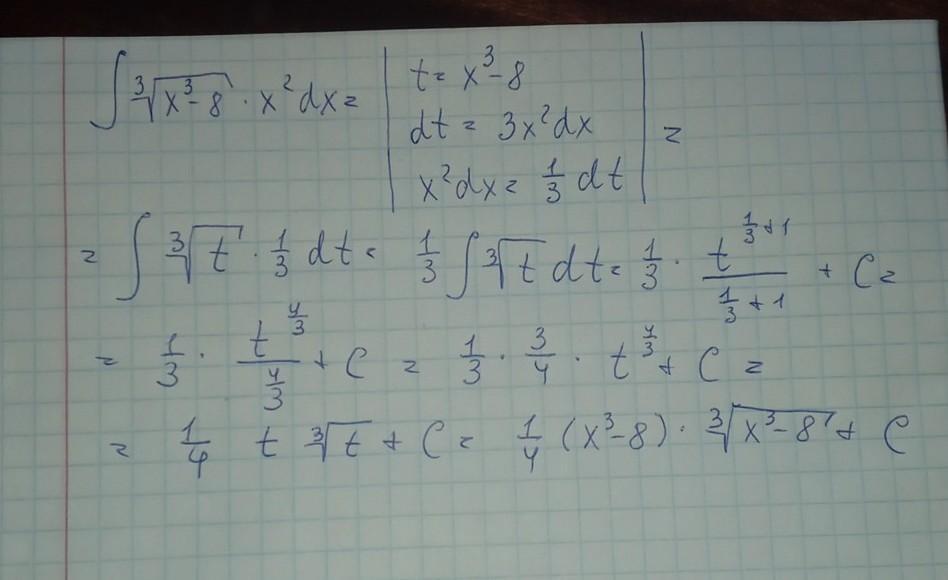 ∫ ∛(x³-8) · x² dx = | t = x³-8
dt = 3x² dx
x² dx = 1/3 dt | =
= ∫ ∛t · 1/3 dt = 1/3 ∫ ∛t dt = 1/3 · t^(1/3+1)/(1/3+1) + C =
= 1/3 · t^(4/3)/(4/3) + C = 1/3 · 3/4 · t^(4/3) + C =
= 1/4 t ∛t + C = 1/4 (x³-8) · ∛(x³-8) + C